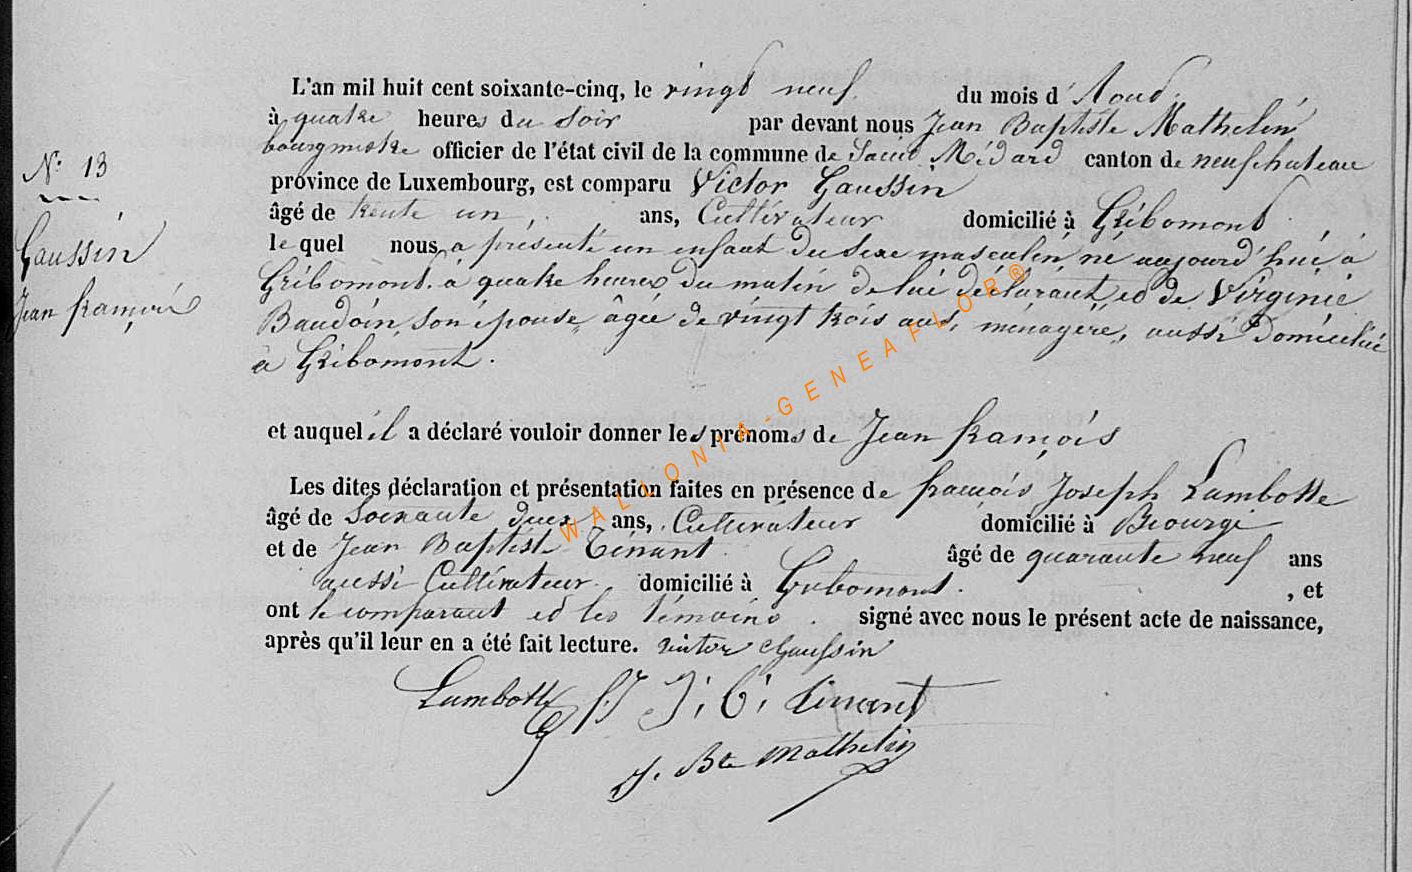 L'an mil huit cent soixante-cinq, le vingt neuf du mois d'Aout
à quatre heures du Soir par devant nous Jean Baptiste Mathelin
bourgmestre officier de l'état civil de la commune de Saint Médard canton de neufchateau
N° 13
province de Luxembourg, est comparu Victor Gaussin
âgé de trente un ans, Cultivateur domicilié à Gribomont,
Gaussin
lequel nous a présenté un enfant du sexe masculin né aujourd'hui à
Gribomont à quatre heures du matin de lui déclarant et de Virginie
Jean françois
Baudoin, son épouse, âgée de vingt trois ans, ménagère, aussi domiciliée
à Gribomont.
et auquel il a déclaré vouloir donner les prénoms de Jean françois
Les dites déclaration et présentation faites en présence de françois Joseph Lambotte
âgé de Soixante deux ans, Cultivateur domicilié à Biourge
et de Jean Baptiste Tinant âgé de quarante neuf ans
aussi Cultivateur domicilié à Gribomont , et
ont le comparant et les témoins signé avec nous le présent acte de naissance,
après qu'il leur en a été fait lecture. victor Gaussin
Lambotte f. J J. B. Tinant
J. Bte Mathelin
WALLONIA-GENEAFLOR®